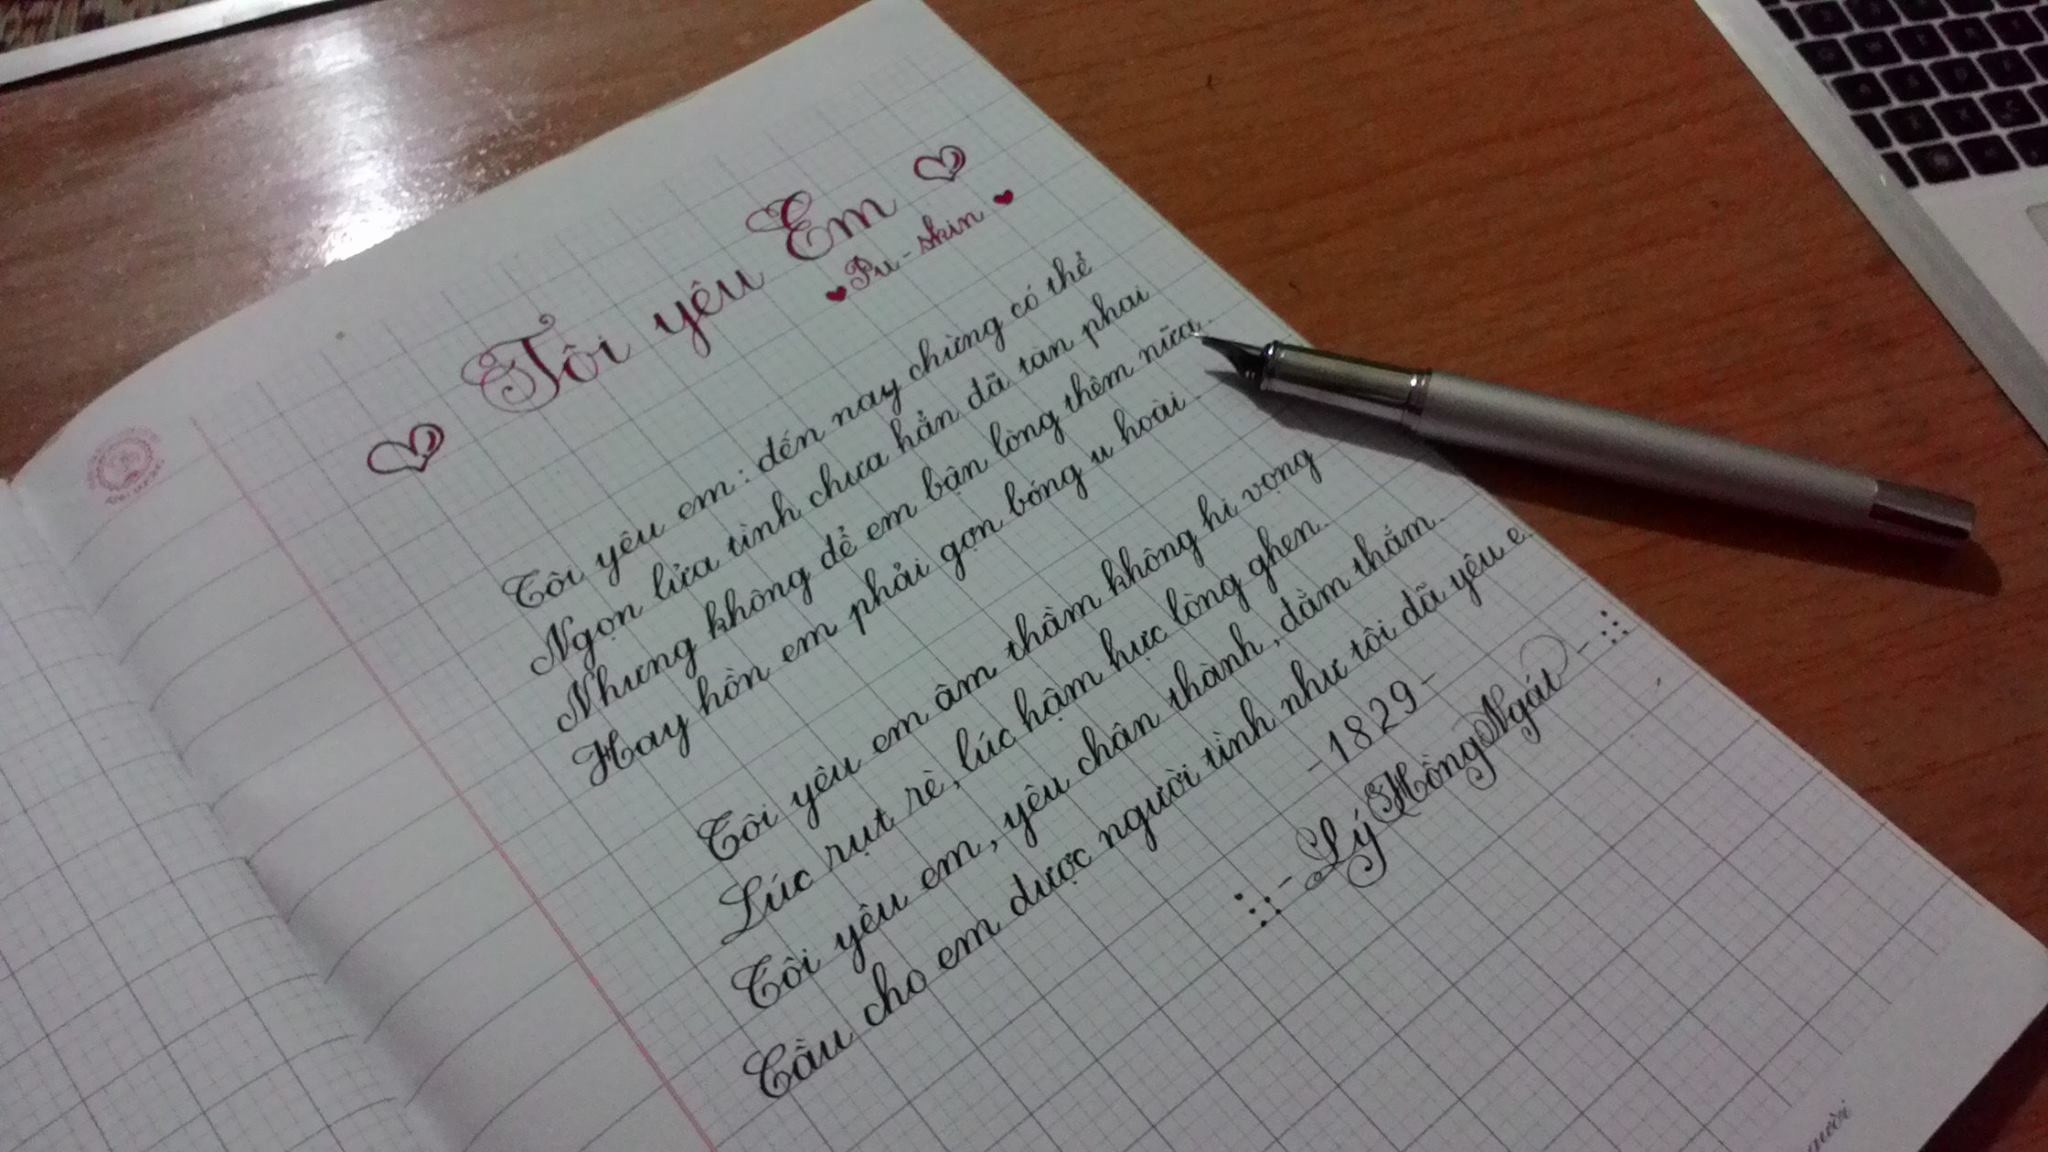 Tôi yêu Em
Pu-skin
Tôi yêu em: đến nay chừng có thể
Ngọn lửa tình chưa hẳn đã tàn phai
Nhưng không để em bận lòng thêm nữa.
Hay hồn em phải gợn bóng u hoài.
Tôi yêu em âm thầm không hi vọng
Lúc rụt rè, lúc hậm hực lòng ghen.
Tôi yêu em, yêu chân thành, đằm thắm.
Cầu cho em được người tình như tôi đã yêu e.
-1829-
-Lý Hồng Ngát-